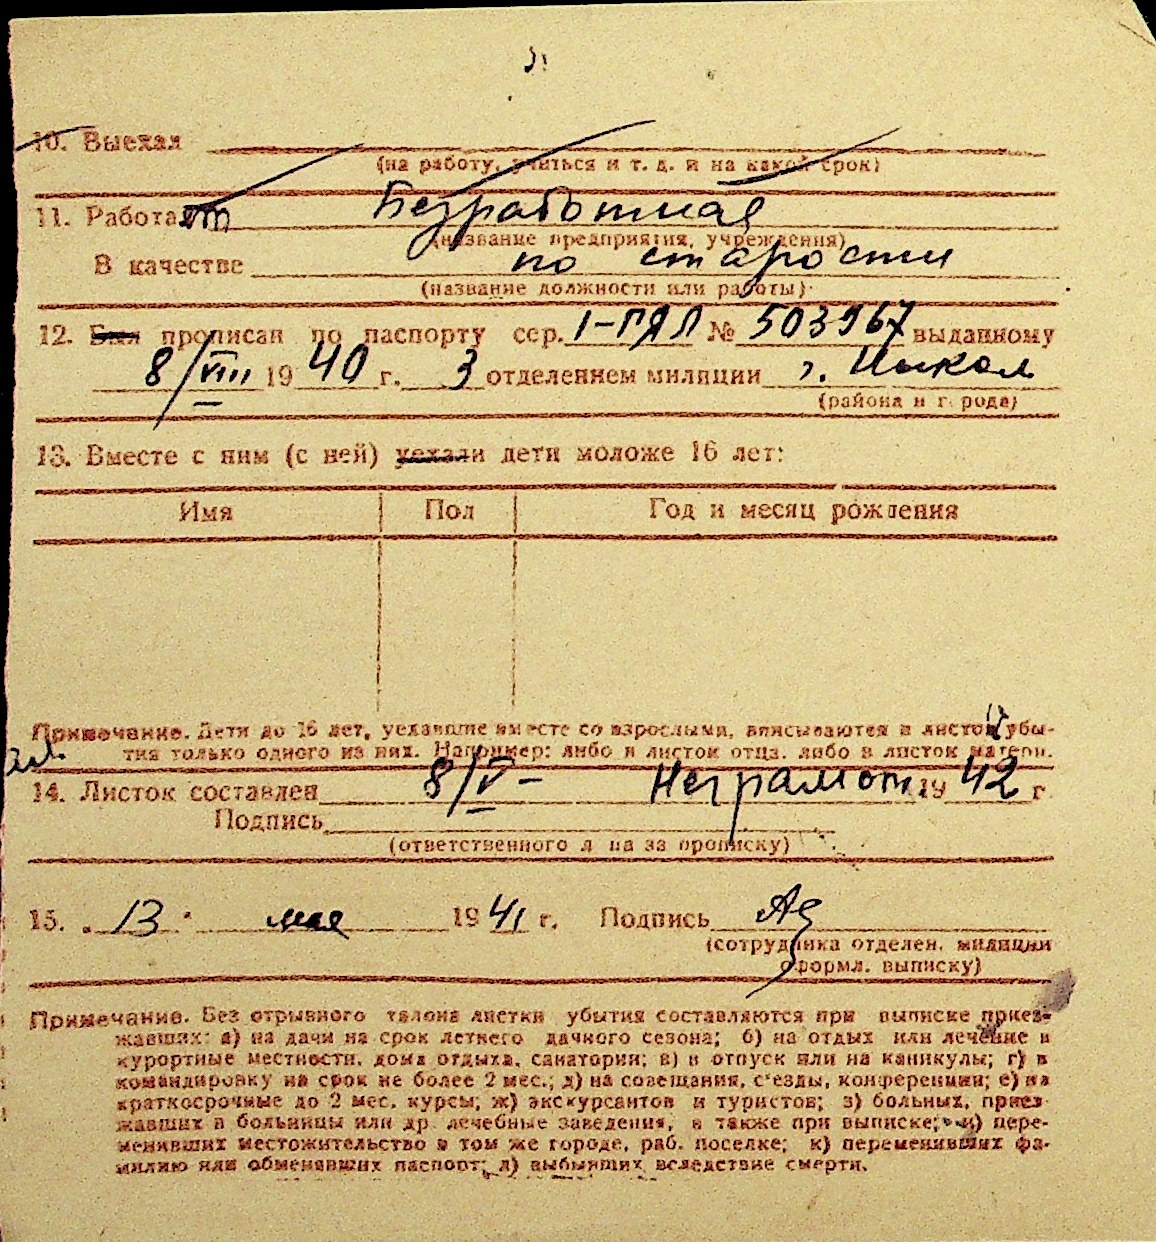 10. Выехал
(на работу, учиться и т. д. и на какой срок)
11. Работает Безработная
(название предприятия, учреждения)
В качестве по старости
(название должности или работы)
12. Был прописан по паспорту сер. I-ПЯЛ № 503967 выданному
8/VIII 1940 г. 3 отделением милиции г.
(района и города)
13. Вместе с ним (с ней) уехали дети моложе 16 лет:
Имя Пол Год и месяц рождения
Примечание. Дети до 16 лет, уехавшие вместе со взрослыми, вписываются в листок убы-
тия только одного из них. Например: либо в листок отца, либо в листок матери.
14. Листок составлен 8/V- Неграмот. 1942 г.
Подпись
(ответственного л на за прописку)
15. 13 мая 1941 г. Подпись
(сотрудника отделен. милиции
оформл. выписку)
Примечание. Без отрывного талона листки убытия составляются при выписке приез-
жавших: а) на дачи на срок летнего дачного сезона; б) на отдых или лечение в
курортные местности, дома отдыха, санатории; в) в отпуск или на каникулы; г) в
командировку на срок не более 2 мес.; д) на совещания, с'езды, конференции; е) на
краткосрочные до 2 мес. курсы; ж) экскурсантов и туристов; з) больных, приез-
жавших в больницы или др. лечебные заведения, а также при выписке; и) пере-
менивших местожительство в том же городе, раб. поселке; к) переменивших фа-
милию или обменявших паспорт; л) выбывших вследствие смерти.